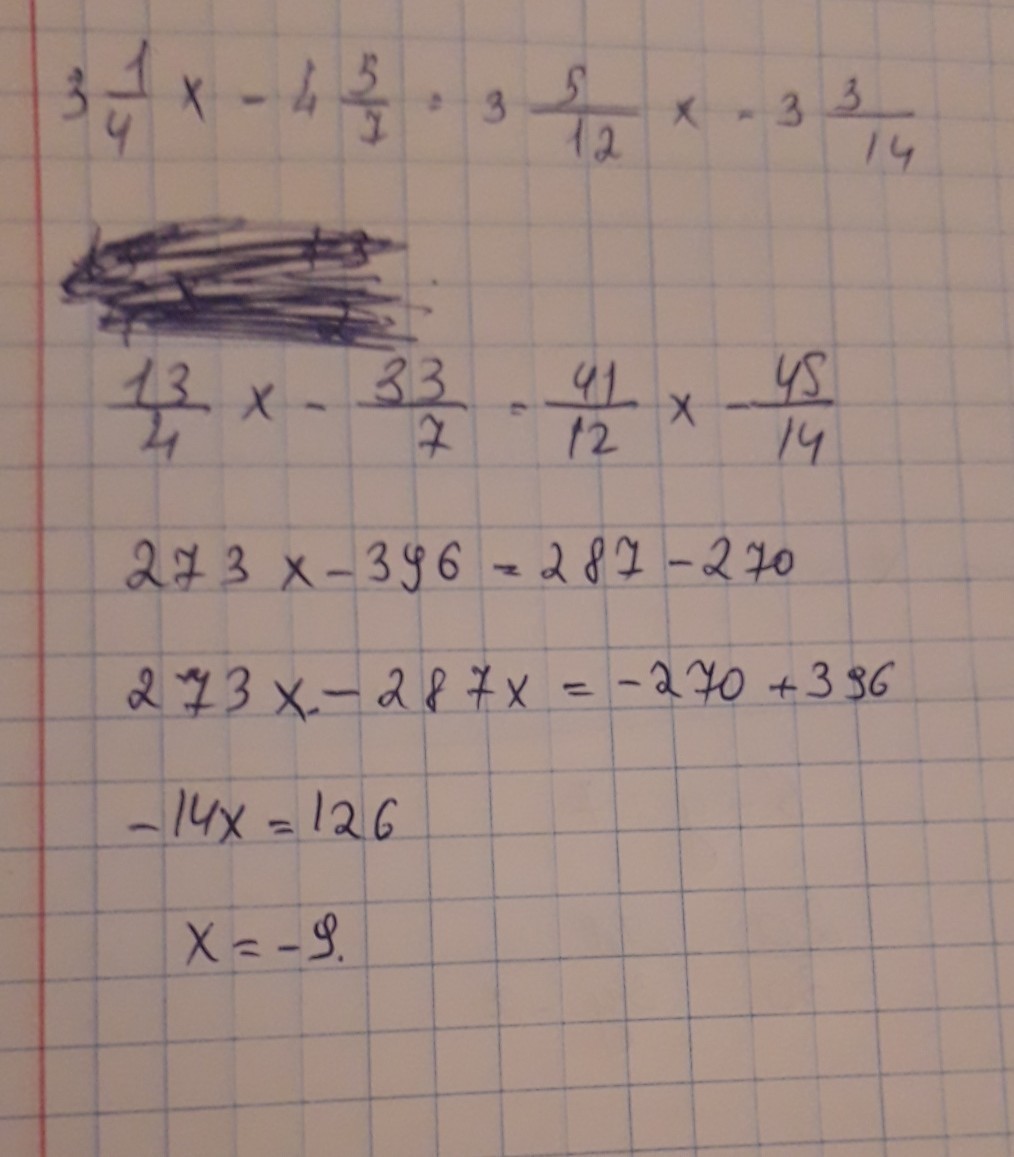 3 1/4 x - 4 5/7 = 3 5/12 x - 3 3/14
13/4 x - 33/7 = 41/12 x - 45/14
273 x - 396 = 287 - 270
273 x - 287x = -270 + 396
-14x = 126
x = -9.